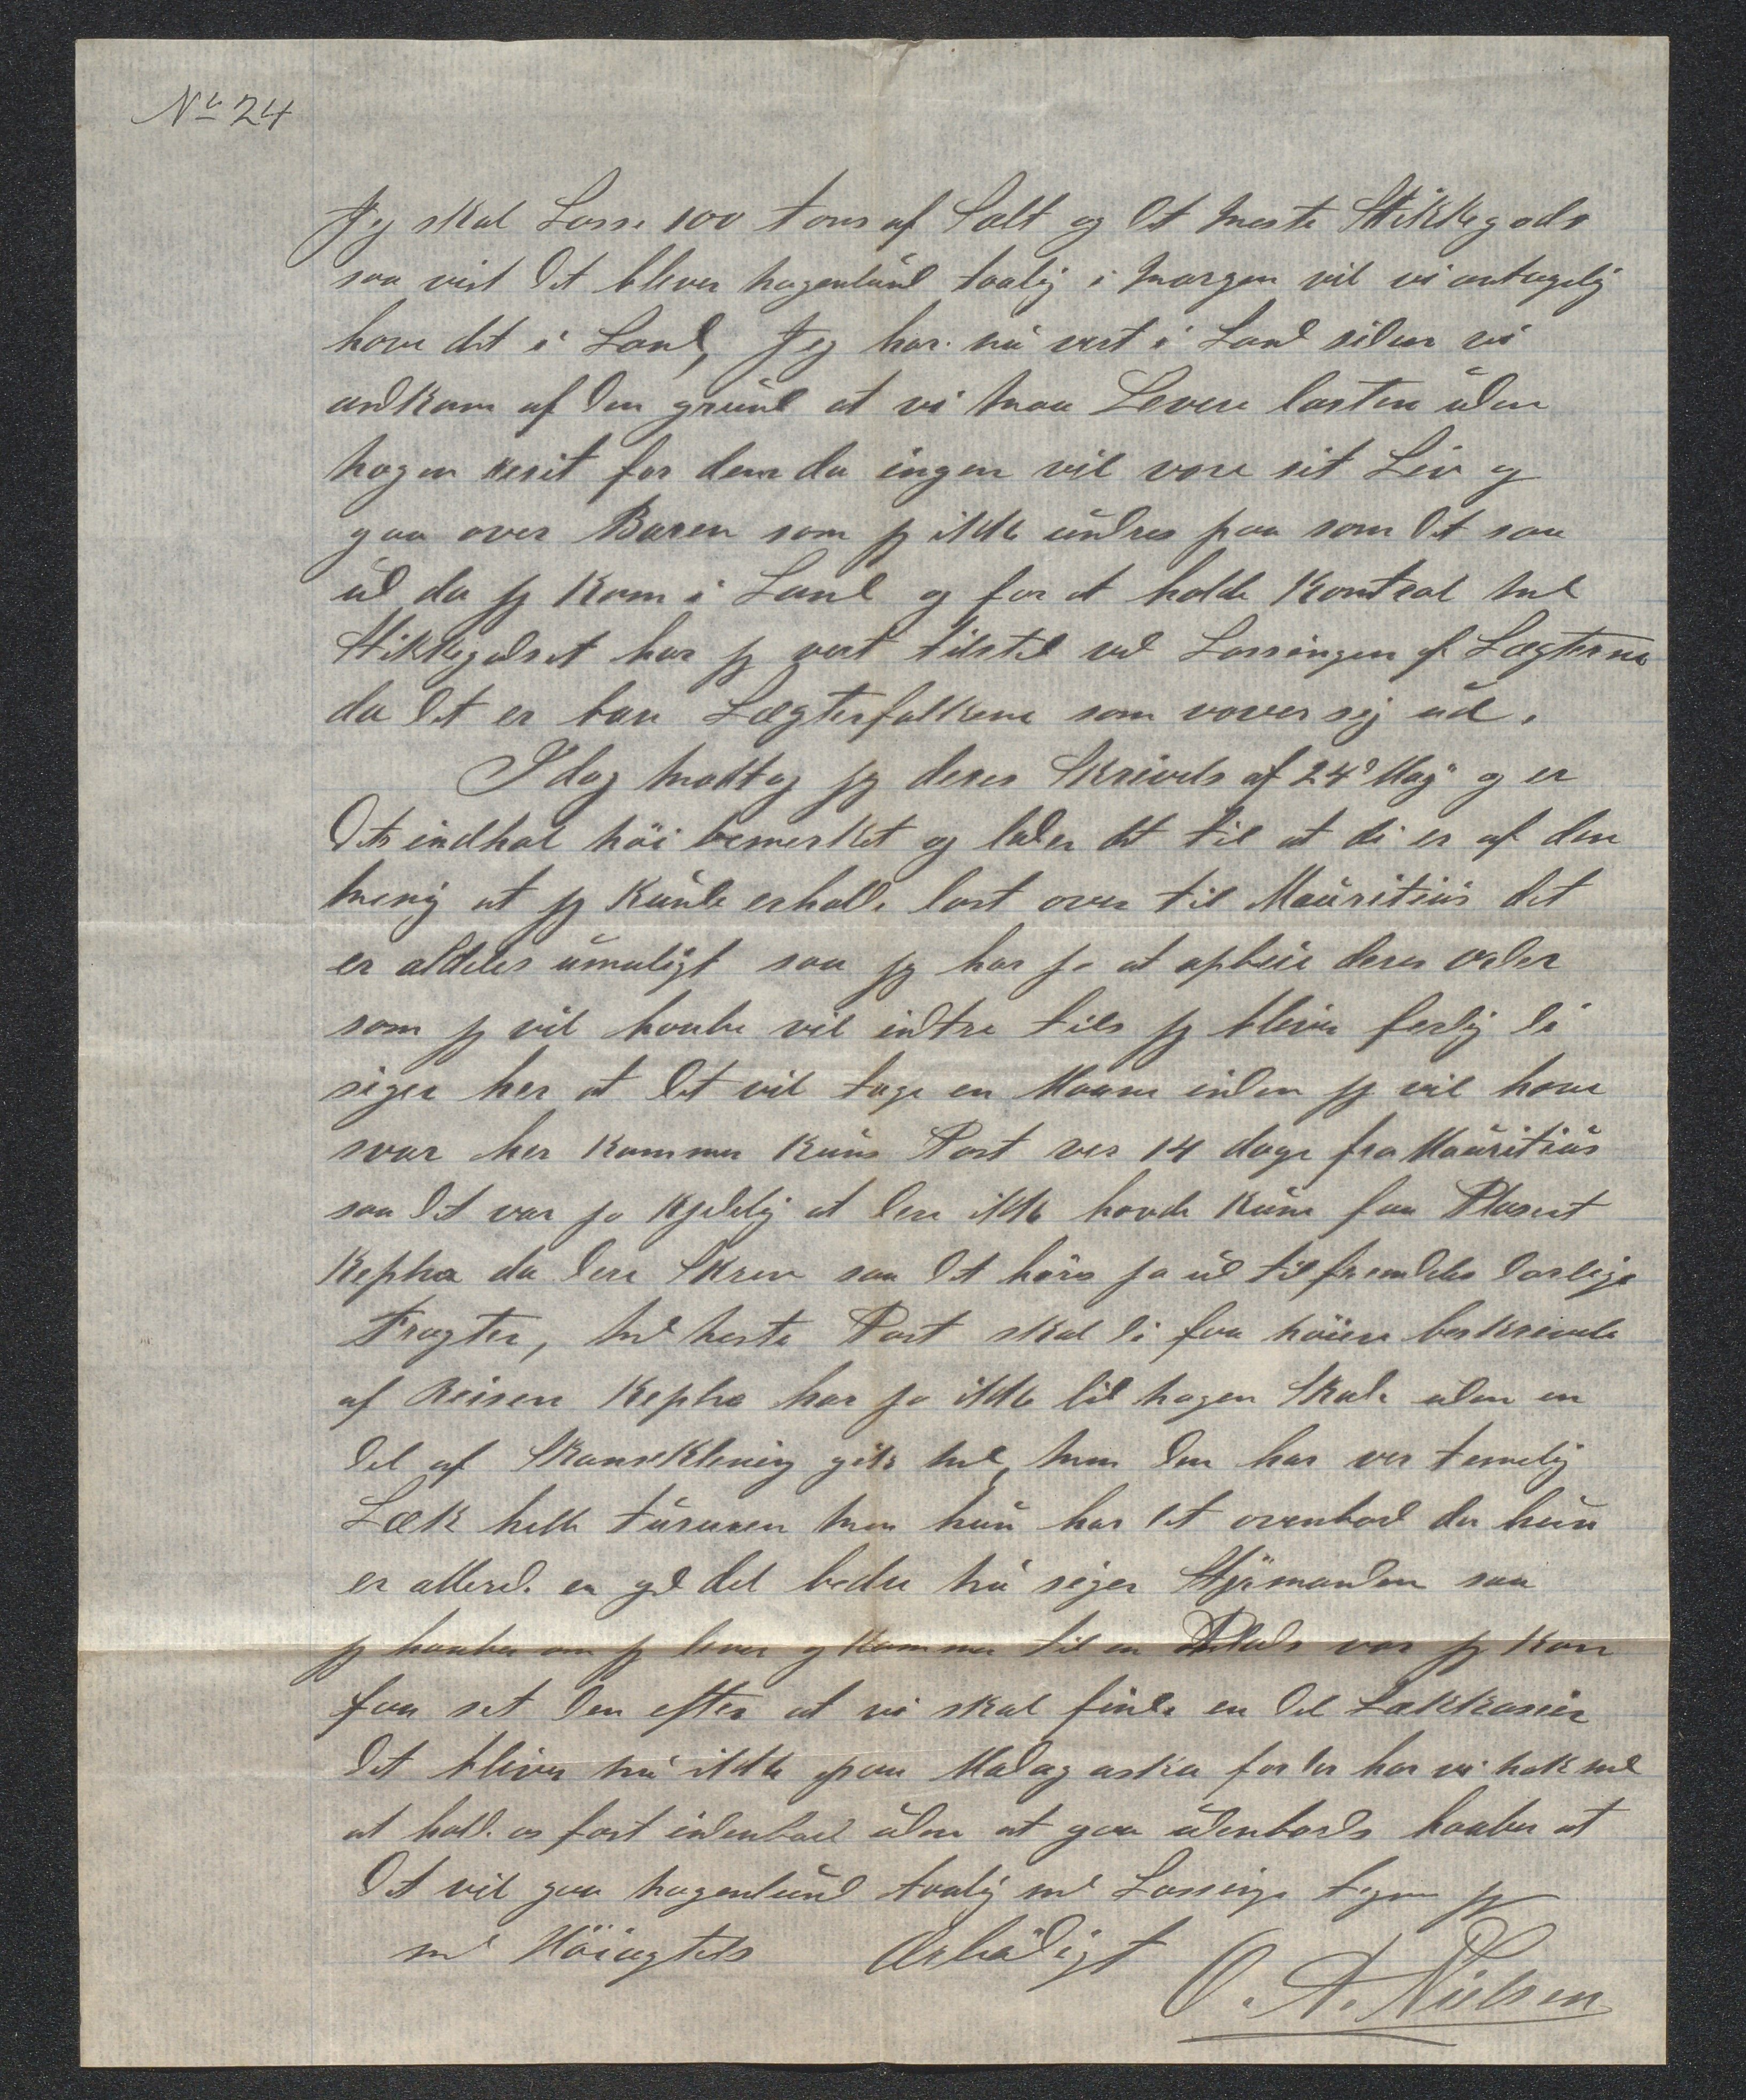 No 24
Jeg skal Losse 100 tons af Salt og Det meste Stikkegods
saa vist Det bliver nogenlund taalig i Morgen vil vi antagelig
have det i Land, Jeg har nu vert i Land siden vi
ankom af Den grund at vi maa Levere lasten uden
nogen resit for dem da ingen vil vove sit Liv og
gaa over Baren som jg ikke undres paa som Det saa
ud da jg kom i Land og for at holde kontrol med
Stikkegodset har jg vert tilsted ved Lossingen af Lægterne
da Det er bare Lægterfolkene som vover sig ud.
I dag modtog jg deres Skrivels af 24d Maj og er
Dets indhol höi bemerket og lader det til at di er af den
mening at jg kunde erholde last over til Mauritius det
er aldeles umuligt saa jg har jo at opbeie deres order
som jg vil haabe vil indtre tils jg bliver ferdig Di
siger her at Det vil tage en Maane inden jg vil have
svar her kommer kuns Post ver 14 dage fra Mauritius
saa Det var jo kjedelig at Dere ikke havde kune faa Plasert
Kepha da Dere Skrev saa Det höres jo ud til fremdeles Darlige
Fragter, med neste Post skal Di faa nöiere beskrivele
af Reisen Kepha har jo ikke lid nogen Skade uden en
Del af Skanseklening gik med, men Den har ver temelig
Læk hele turen men hun har Det ovenbord da hun
er allerede en god del bedre nu siger Styrmanden saa
jg haaber om jg lever og kommer til en Plads vor jg kan
faa set Den efter at vi skal finde en Del Lækkasier
Det bliver nu ikke paa Madagaskar for her har vi nok med
at holde os fast indenbord uden at gaa udenbords haaber at
Det vil gaa nogenlund taalig med Lossinge tegner jg
med Höiagtels Ærbödigt
O. A. Nielsen